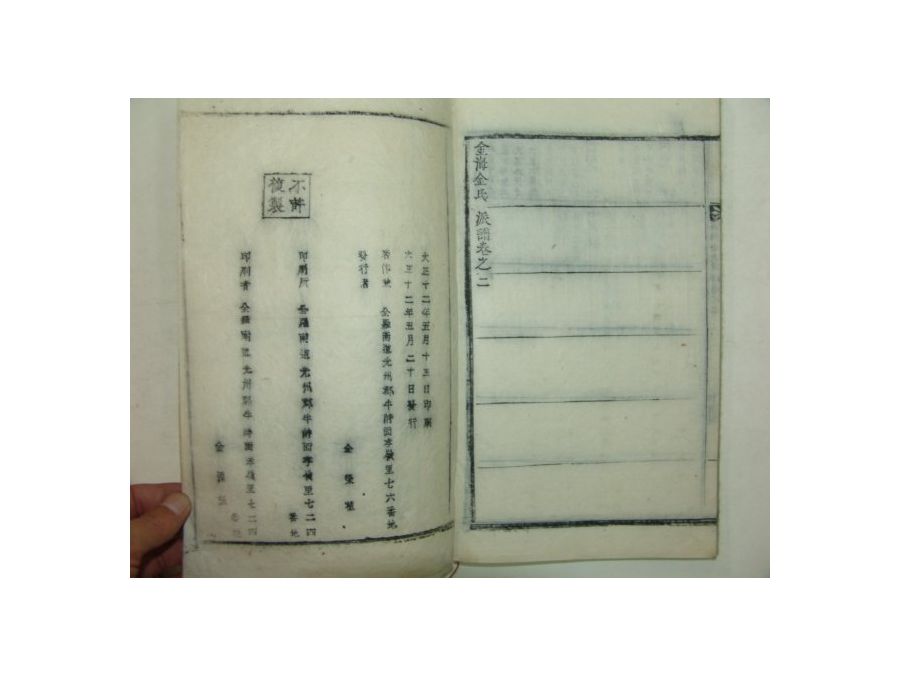 金海金氏 派譜卷之二
大正十二年五月十五日印刷
大正十二年五月二十日發行
著作兼 全羅南道光州郡牛峙面本嶺里七六番地
發行者
金
印刷所 全羅南道光州郡牛峙面本嶺里七二四番地
印刷者 全羅南道光州郡牛峙面本嶺里七二四番地
金
不許
複製